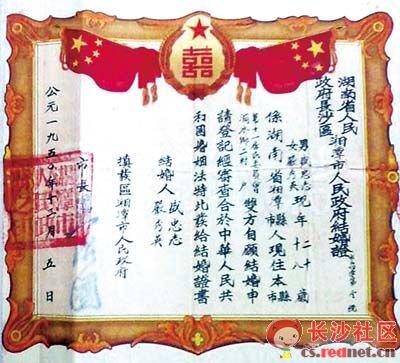 囍
湖南省人民
政府長沙區
湘潭市人民政府結婚證
男 盛忠志 現年 二十 歲
女 嚴秀英 十八
係湖南省湘潭縣人現住本市縣
雙方自願結婚申
請登記經審查合於中華人民共
和國婚姻法特此發給結婚證書
結婚人 盛忠志
嚴秀英
填發區湘潭市人民政府
市長
公元一九五 年十二月五日
长沙社区
cs.rednet.cn